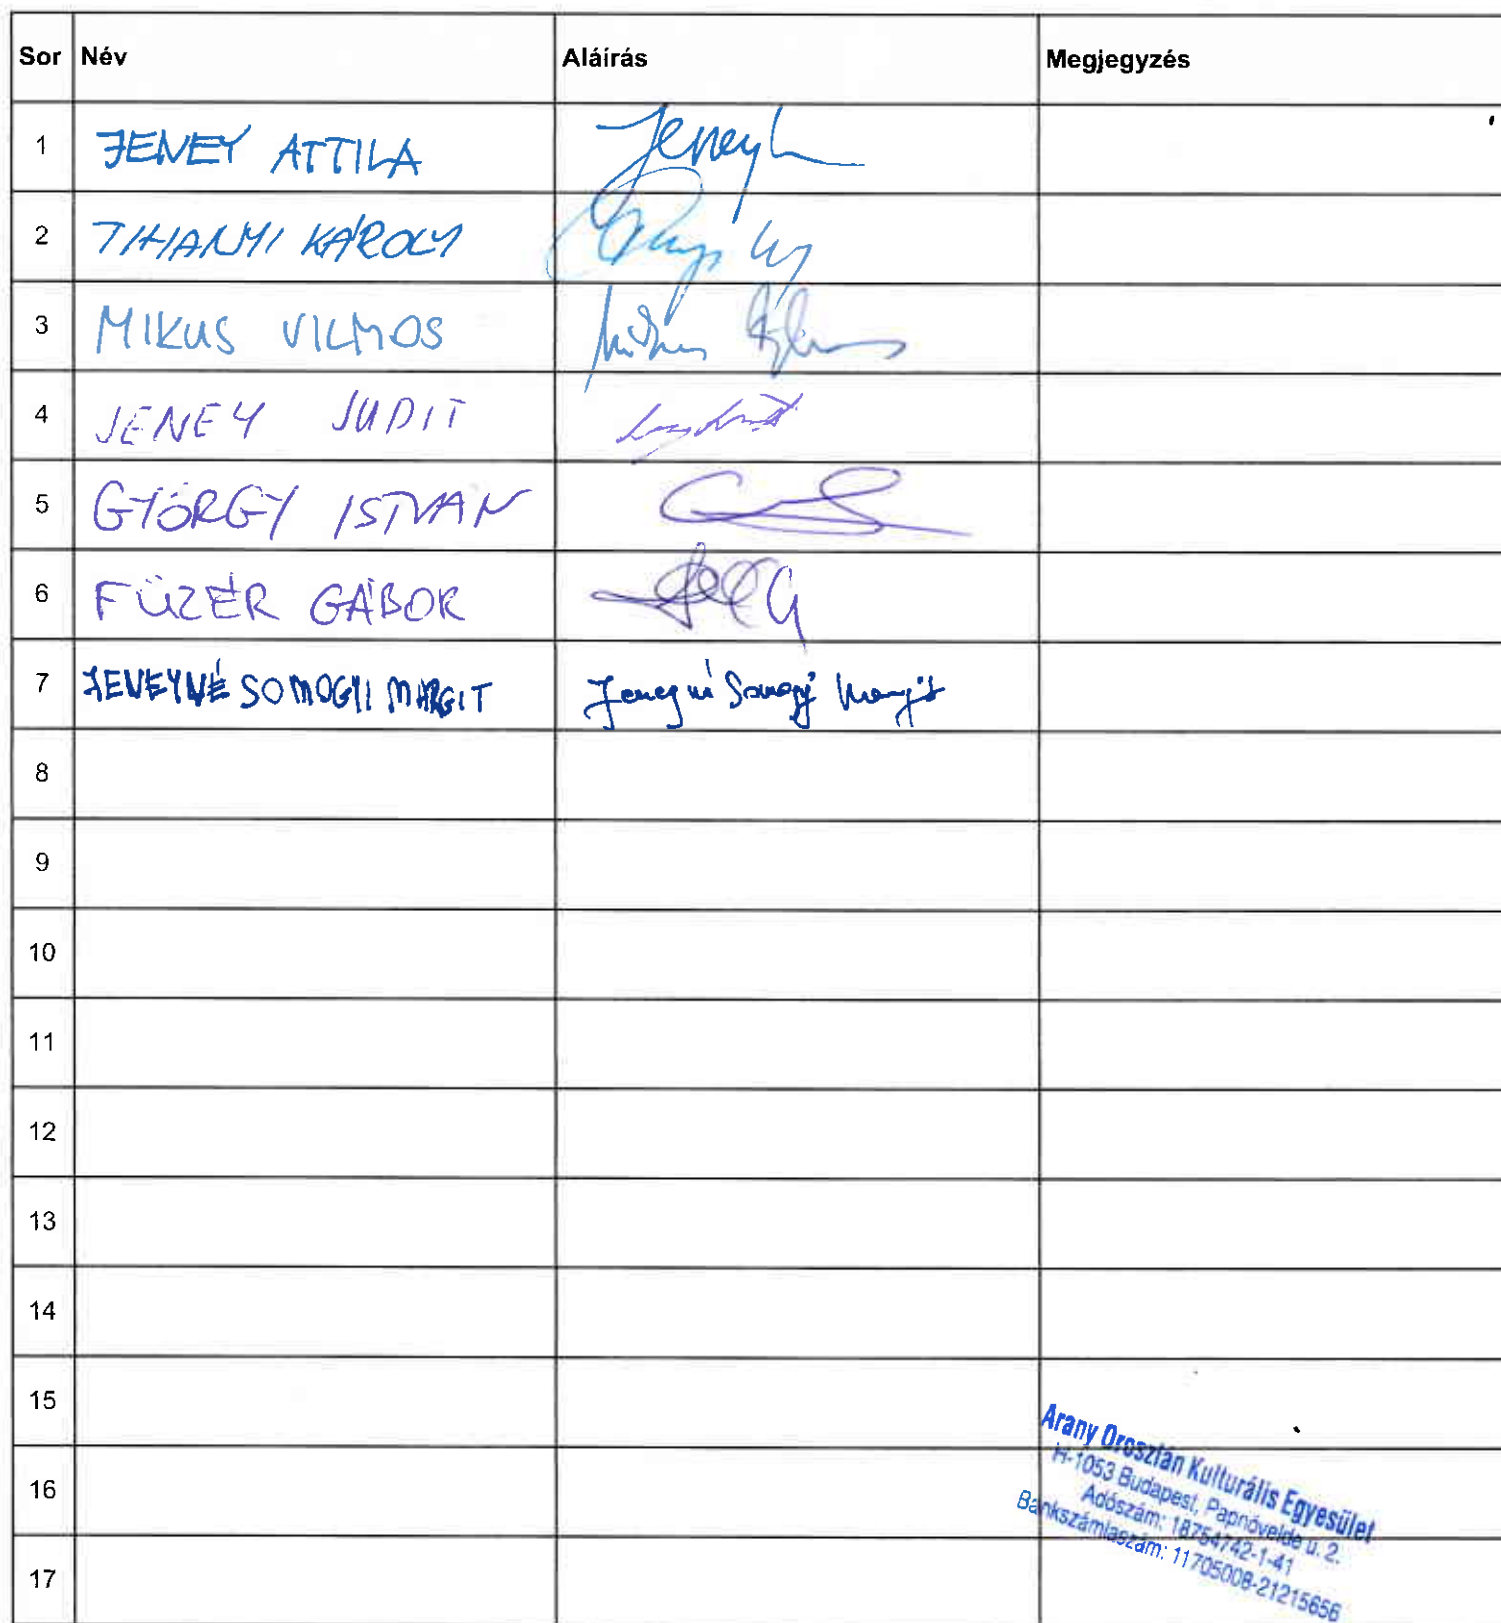 Sor Név Aláírás Megjegyzés
1 JENEY ATTILA Jeney
2 TIHANYI KÁROLY
3 MIKUS VILMOS
4 JENEY JUDIT
5 GYÖRGY ISTVÁN
6 FÜZÉR GÁBOR
7 JENEYNÉ SOMOGYI MARGIT Jeneyné Somogyi Margit
8
9
10
11
12
13
14
15
16
17
Arany Oroszlán Kulturális Egyesület
H-1053 Budapest, Papnövelde u. 2.
Adószám: 18754742-1-41
Bankszámlaszám: 11705008-21215656